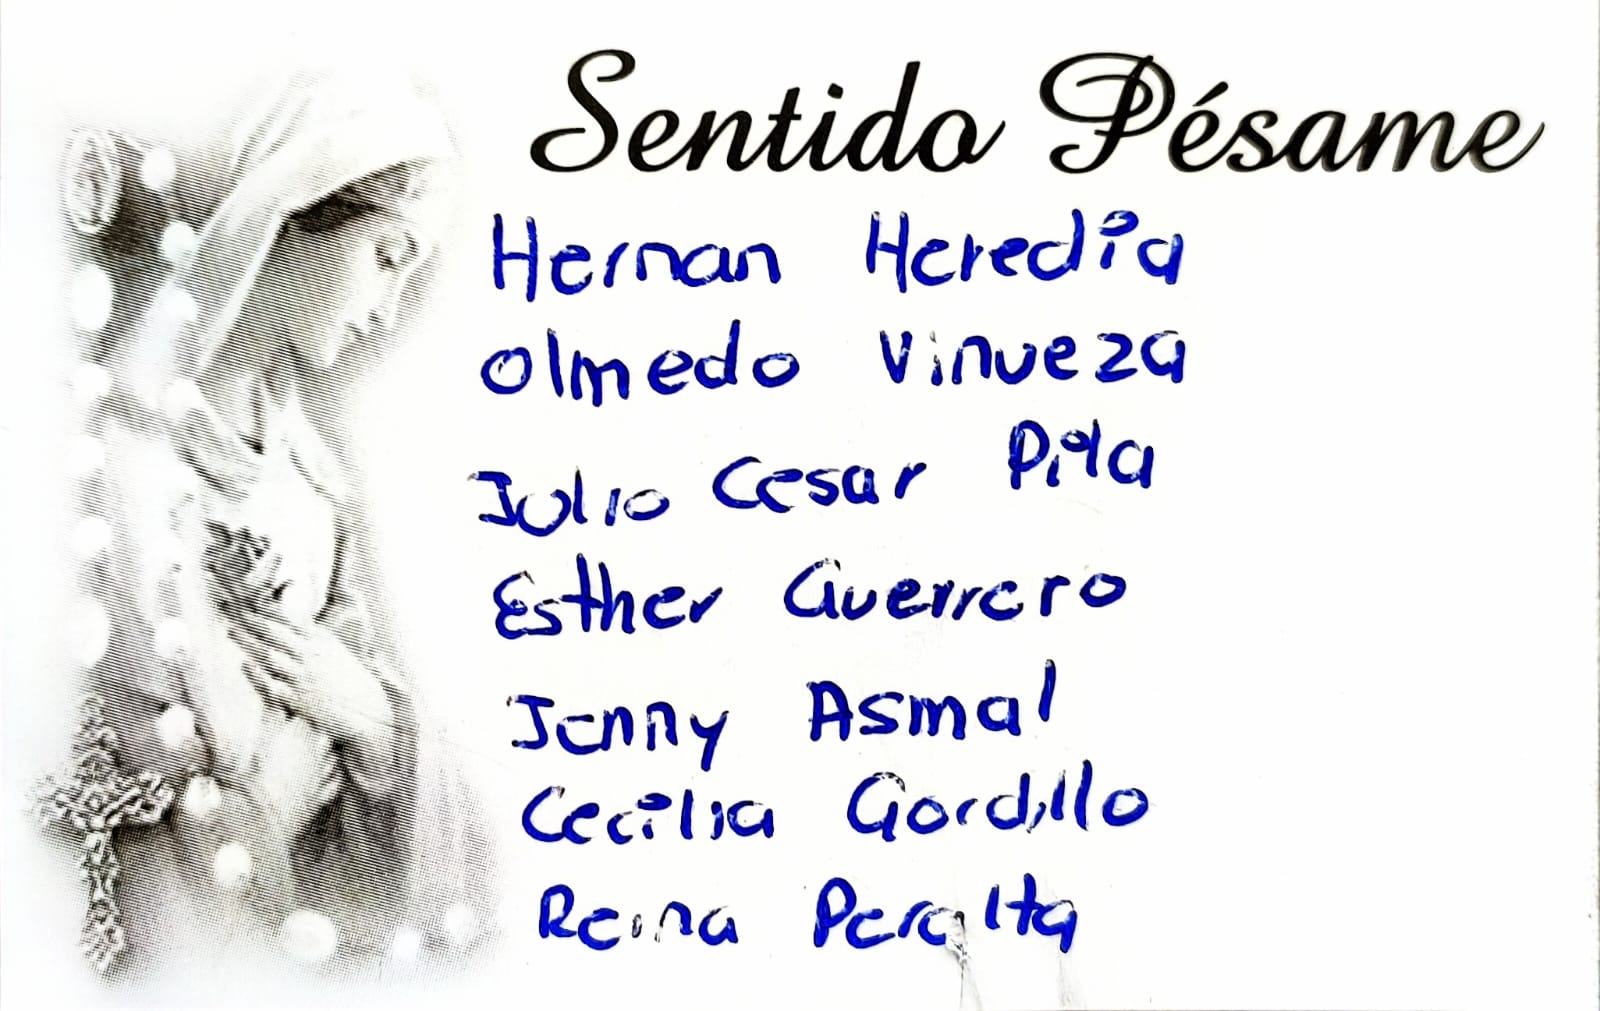 Sentido Pésame
Hernan Heredia
Olmedo Vinueza
Julio Cesar Pila
Esther Guerrero
Jenny Asmal
Cecilia Gordillo
Reina Peralta